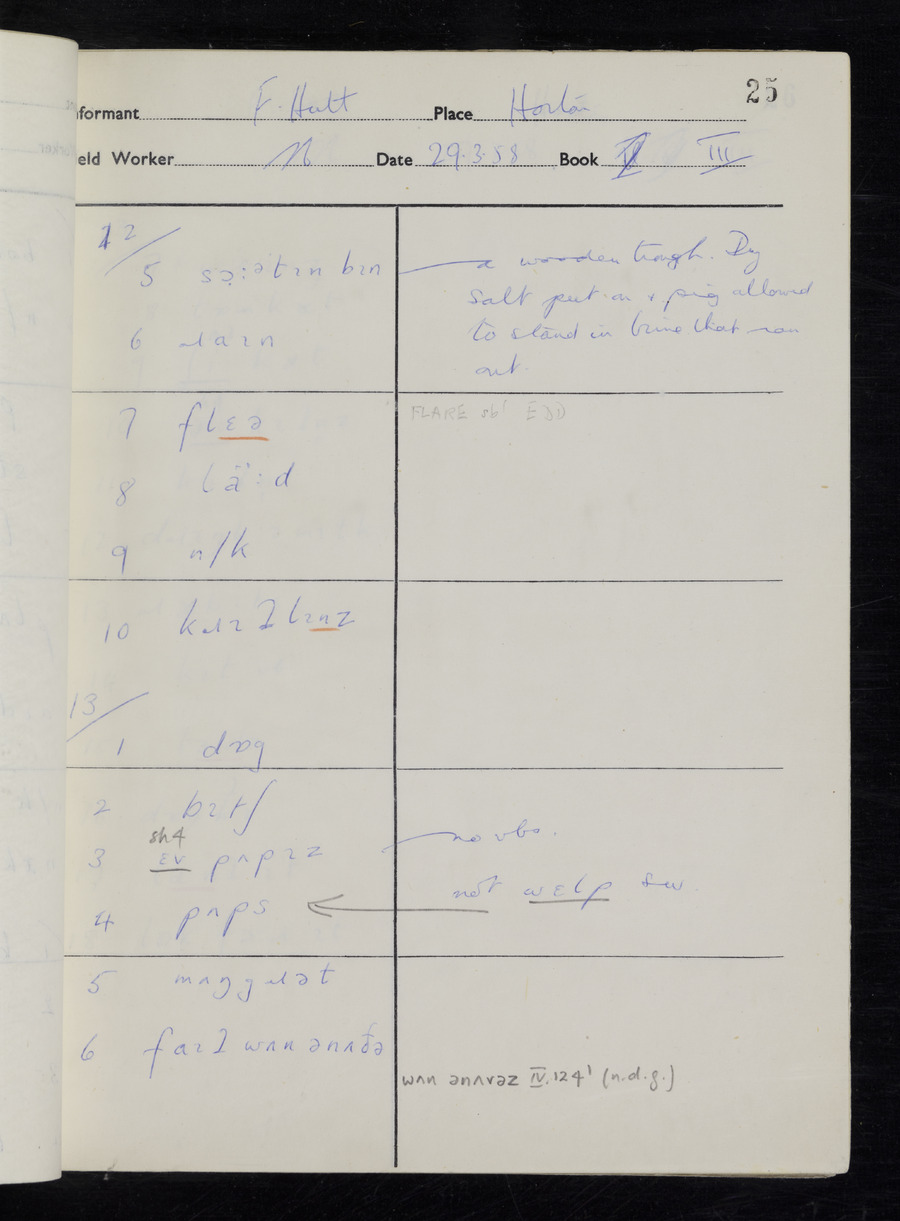 25
formant F. Hutt Place Horton
eld Worker N Date 29.3.58 Book II III
12/
5 sə̣:ətɪn bɪn
a wooden trough. Dry
salt put on & pig allowed
to stand in brine that ran
out.
6 ɹaɪn
7 flɛə
FLARE sb¹ EDD
8 lä:d
9 n/k
10 kɹɪʒlɪnz
13/
1 dɒg
2 bɪtʃ
sh4
3 ɛv pʌpɪz
no vbs.
4 pʌps
not wɛlp sw
5 mʌŋgɹət
6 faɪʔ wʌn ənʌðə
wʌn ənʌvəz IV.124¹ (n.d.g.)